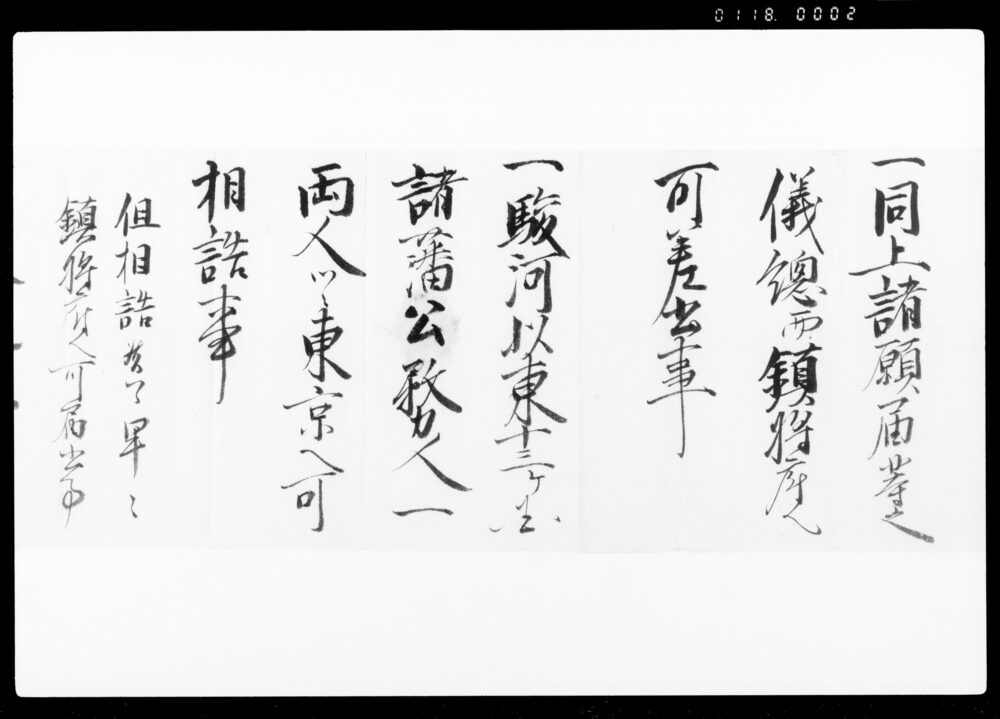 0118.0002
一同上諸願届等之
儀總而鎮将府へ
可差出事
一駿河以東十三ケ国
諸藩公務人一
両人ツヽ東京へ可
相詰事
但相詰候ハヽ早々
鎮将府へ可届出事